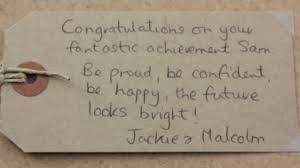 Congratulations on your
fantastic achievement Sam
Be proud, be confident,
be happy, the future
looks bright!
Jackie & Malcolm